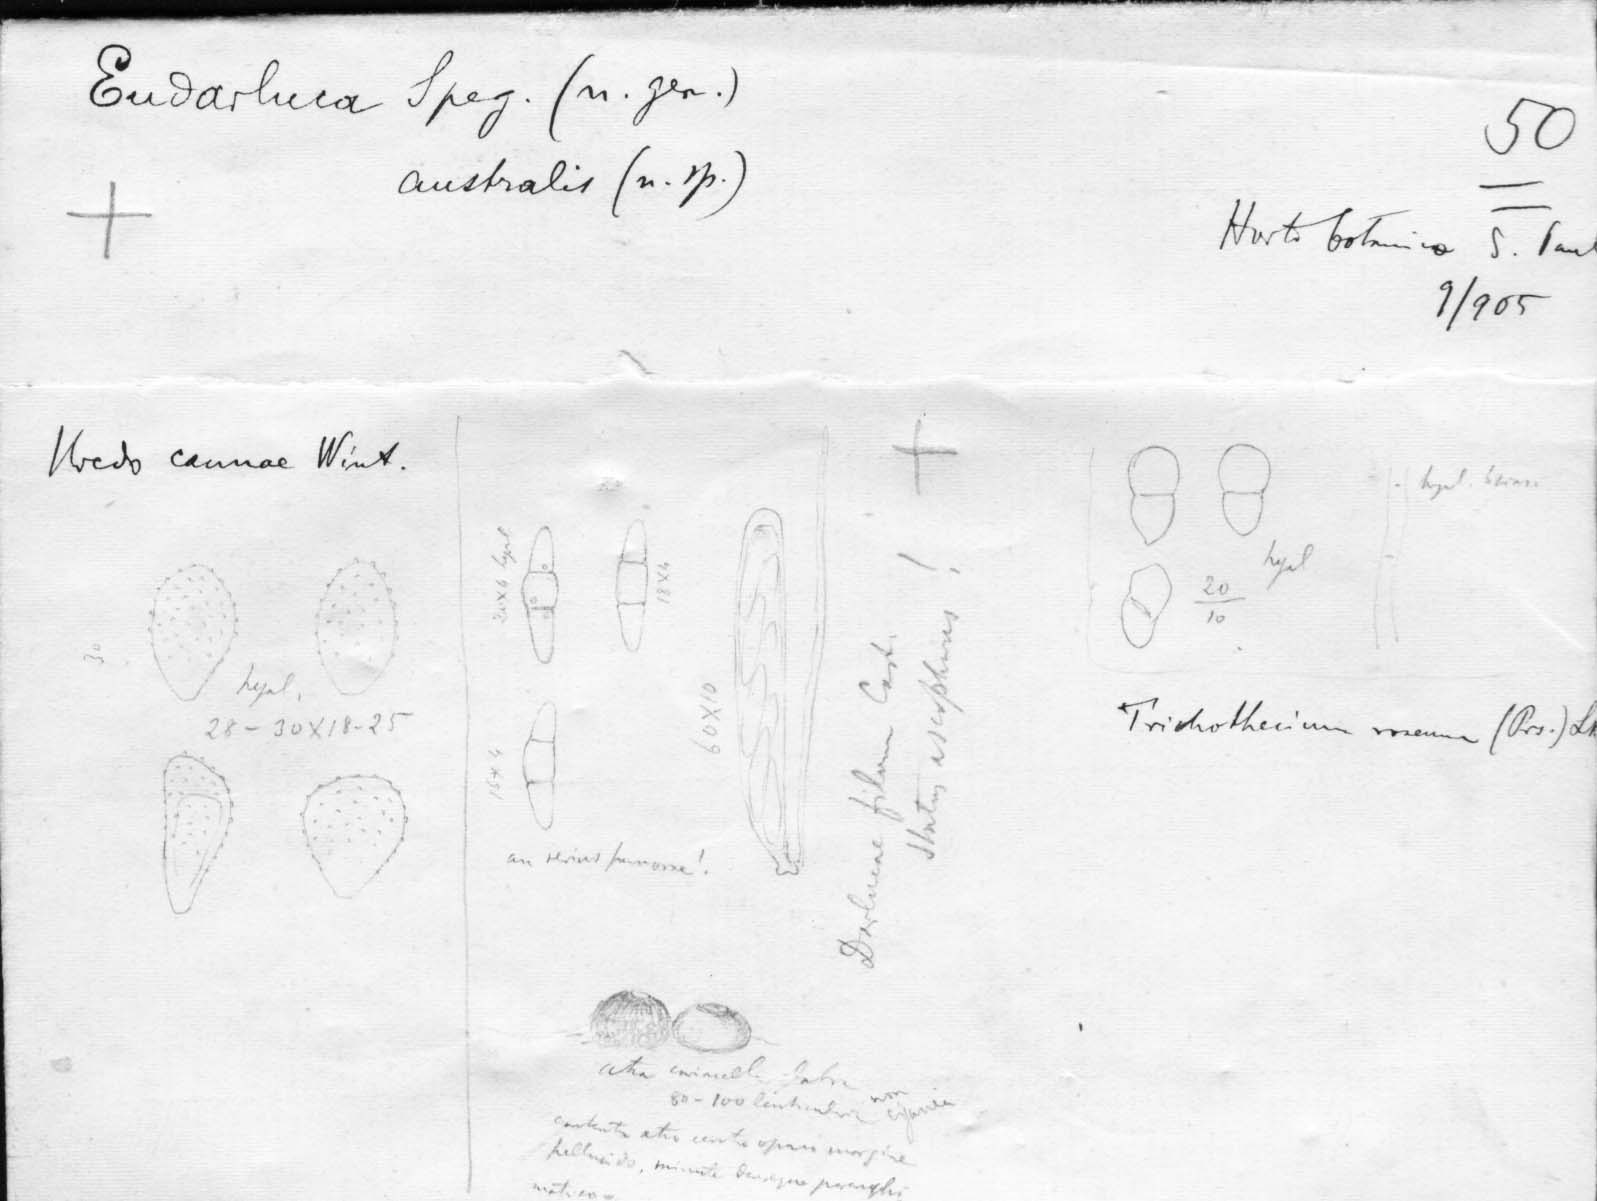 Eudarluca Speg. (n. gen.)
australis (n. sp.)
50
Horto botanico S. Paul
9/905
Uredo cannae Wint.
30
hyal.
28-30X18-25
20X4 hyal
18X4
15X4
60X10
an serius
Darlucae filum Cast.
status ascophorus!
hyal
20
10
hyal.
Trichothecium roseum (Prs.) Lk
atra
80-100 lenticularia non
contextu atro centro opaco margine
pellucido, minute denseque